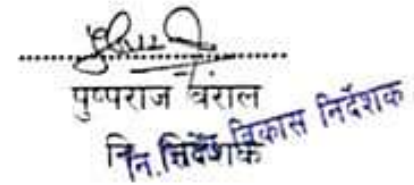 पुष्पराज बराल
नि. निर्देशक
नि. विकास निर्देशक